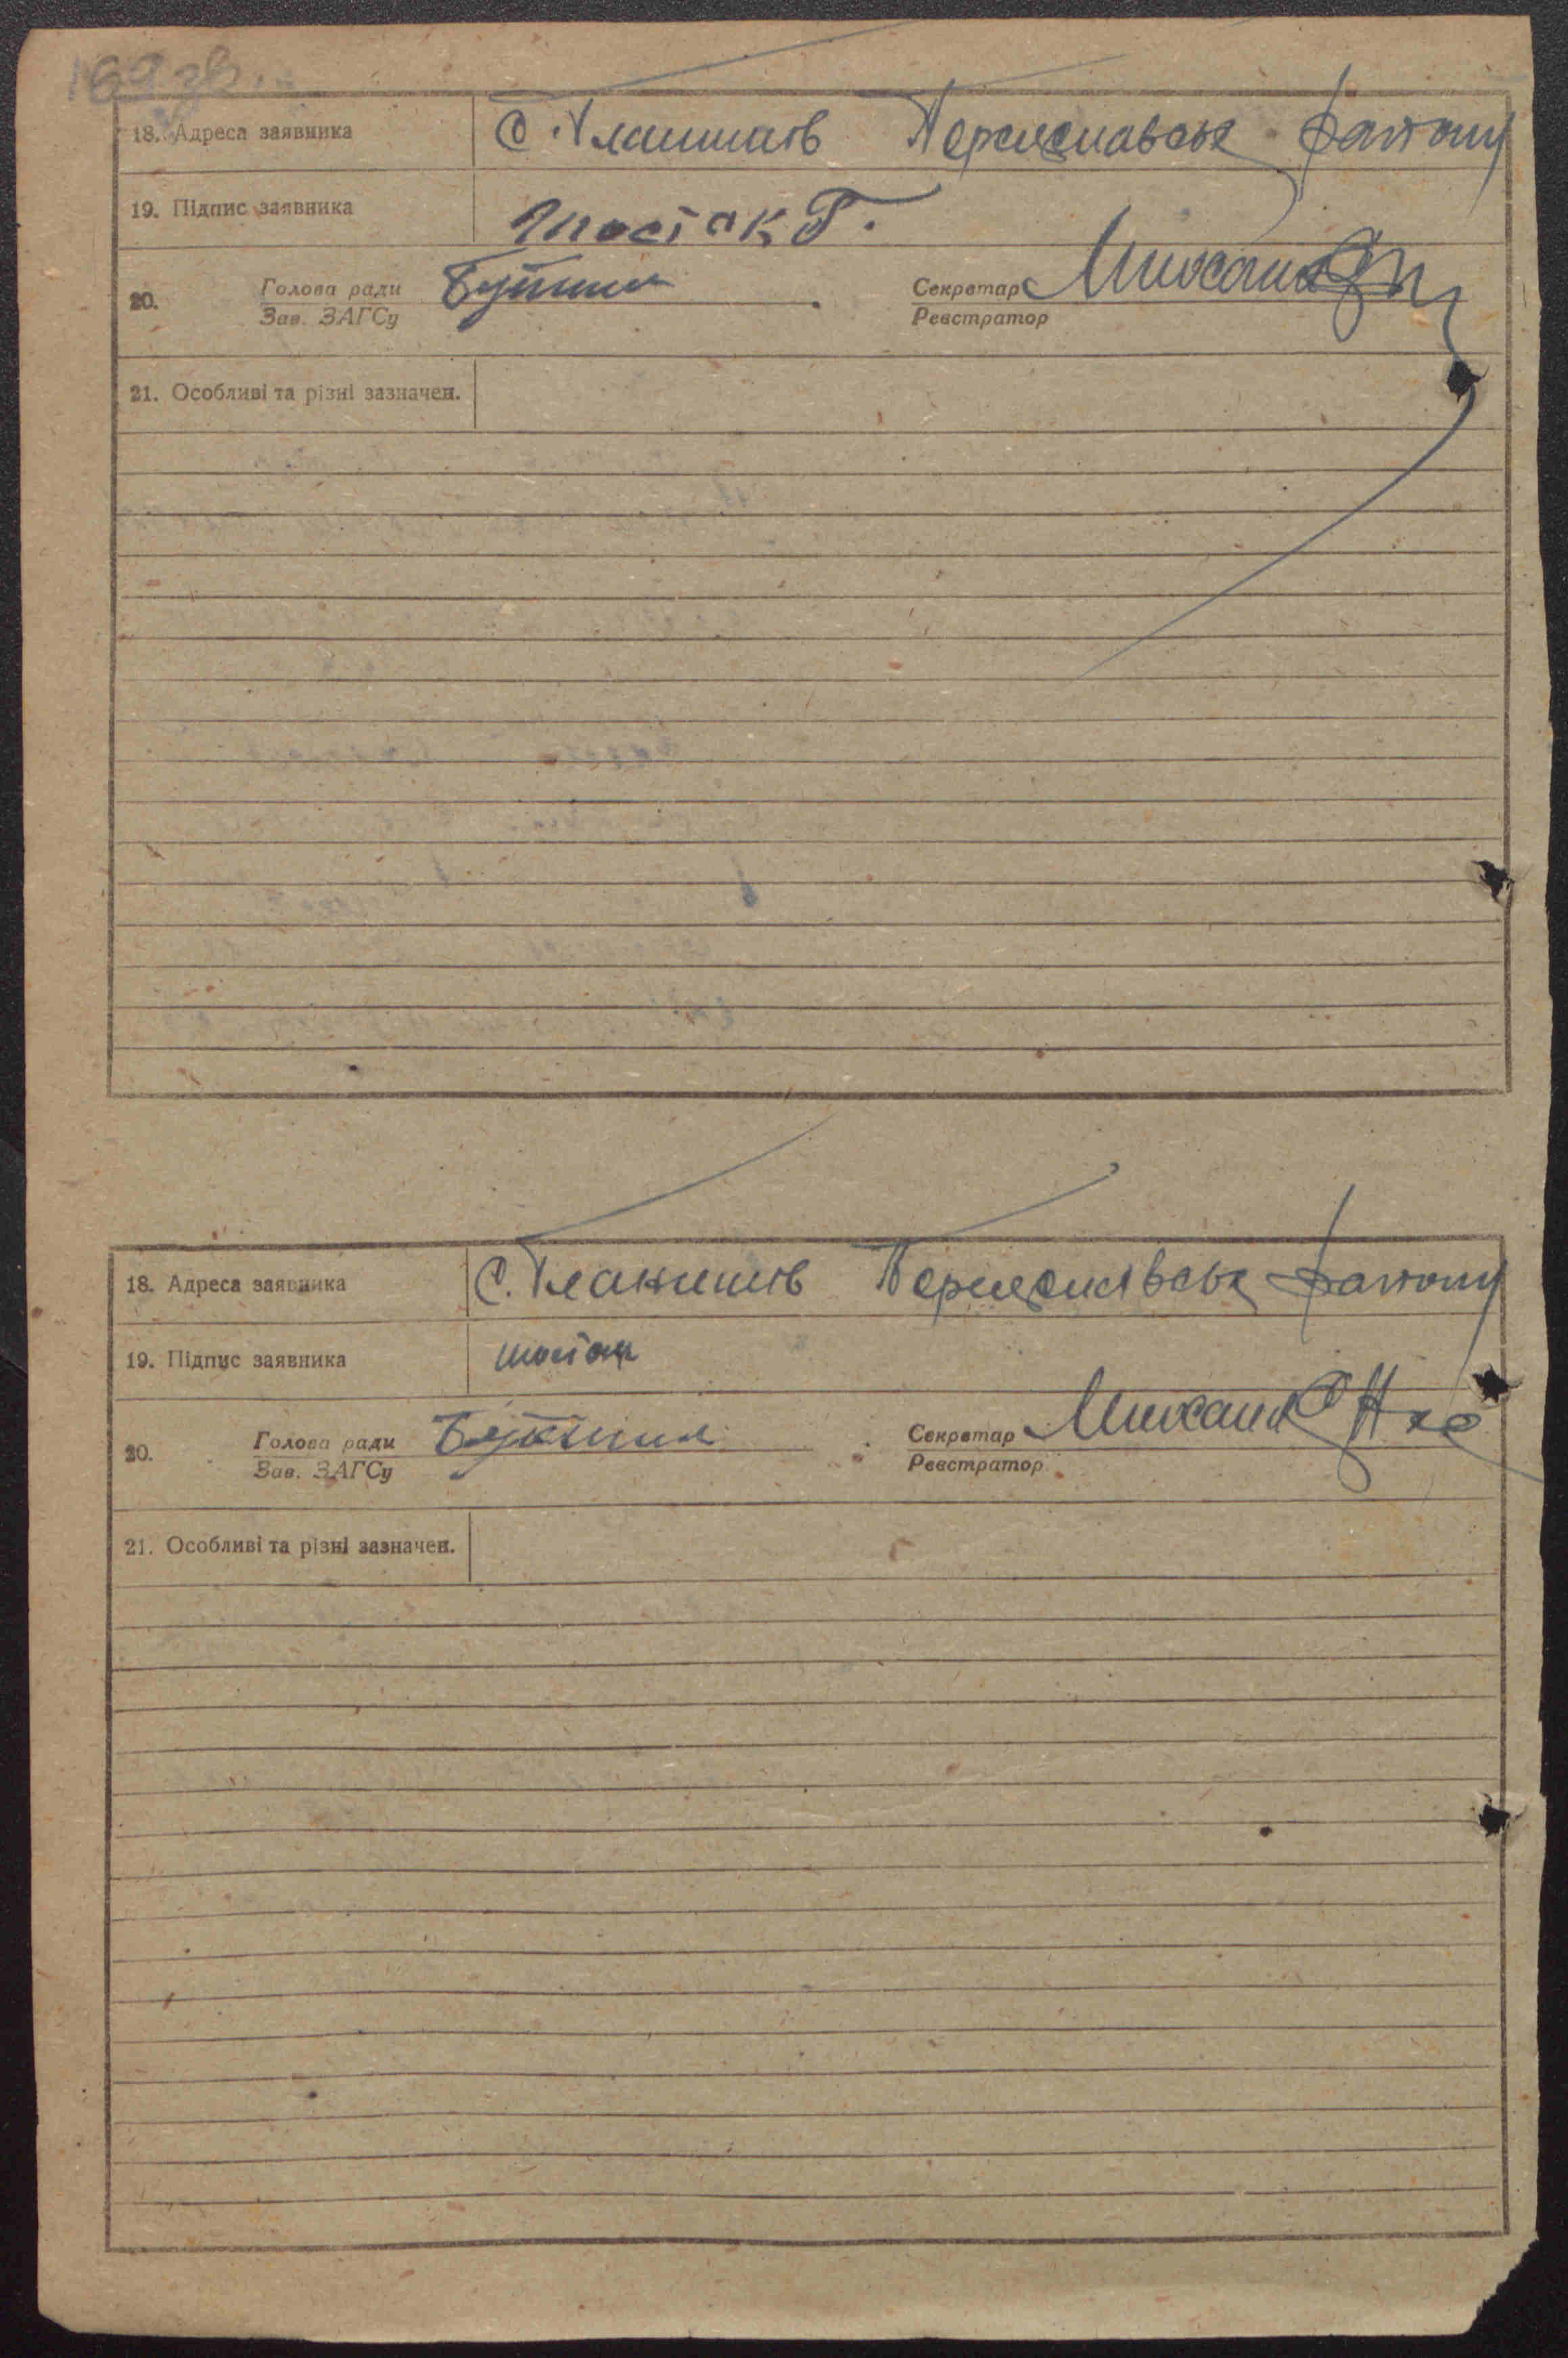 169 зв.
18. Адреса заявника С. Гланишів Переяславськ району
19. Підпис заявника Шостак Г.
20. Голова ради Секретар
Зав. ЗАГСу Реєстратор
21. Особливі та різні зазначен.
18. Адреса заявника С. Гланишів Переяславськ району
19. Підпис заявника шостак
20. Голова ради Секретар
Зав. ЗАГСу Реєстратор
21. Особливі та різні зазначен.